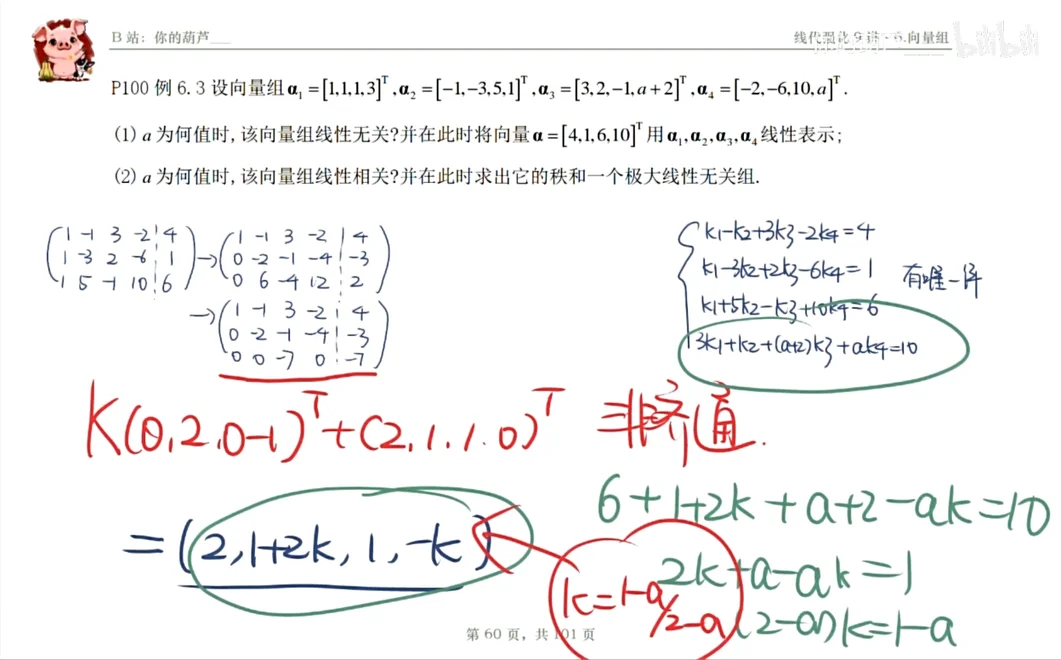 B 站：你的葫芦___
线代强化9讲-6.向量组
bilibili
P100 例 6.3 设向量组 α₁ = [1,1,1,3]ᵀ, α₂ = [-1,-3,5,1]ᵀ, α₃ = [3,2,-1,a+2]ᵀ, α₄ = [-2,-6,10,a]ᵀ.
(1) a 为何值时,该向量组线性无关?并在此时将向量 α = [4,1,6,10]ᵀ 用 α₁,α₂,α₃,α₄ 线性表示;
(2) a 为何值时,该向量组线性相关?并在此时求出它的秩和一个极大线性无关组.
(1 -1 3 -2 | 4
1 -3 2 -6 | 1
1 5 -1 10 | 6)
→ (1 -1 3 -2 | 4
0 -2 -1 -4 | -3
0 6 -4 12 | 2)
→ (1 -1 3 -2 | 4
0 -2 -1 -4 | -3
0 0 -7 0 | -7)
{ k1-k2+3k3-2k4=4
k1-3k2+2k3-6k4=1
k1+5k2-k3+10k4=6
3k1+k2+(a+2)k3+ak4=10
有唯一解
K(0,2,0-1)ᵀ+(2,1,1.0)ᵀ 非齐通.
=(2,1+2k,1,-k)
6+1+2k+a+2-ak=10
2k+a-ak=1
(2-a)k=1-a
k=1-a/2-a
第 60 页，共 101 页